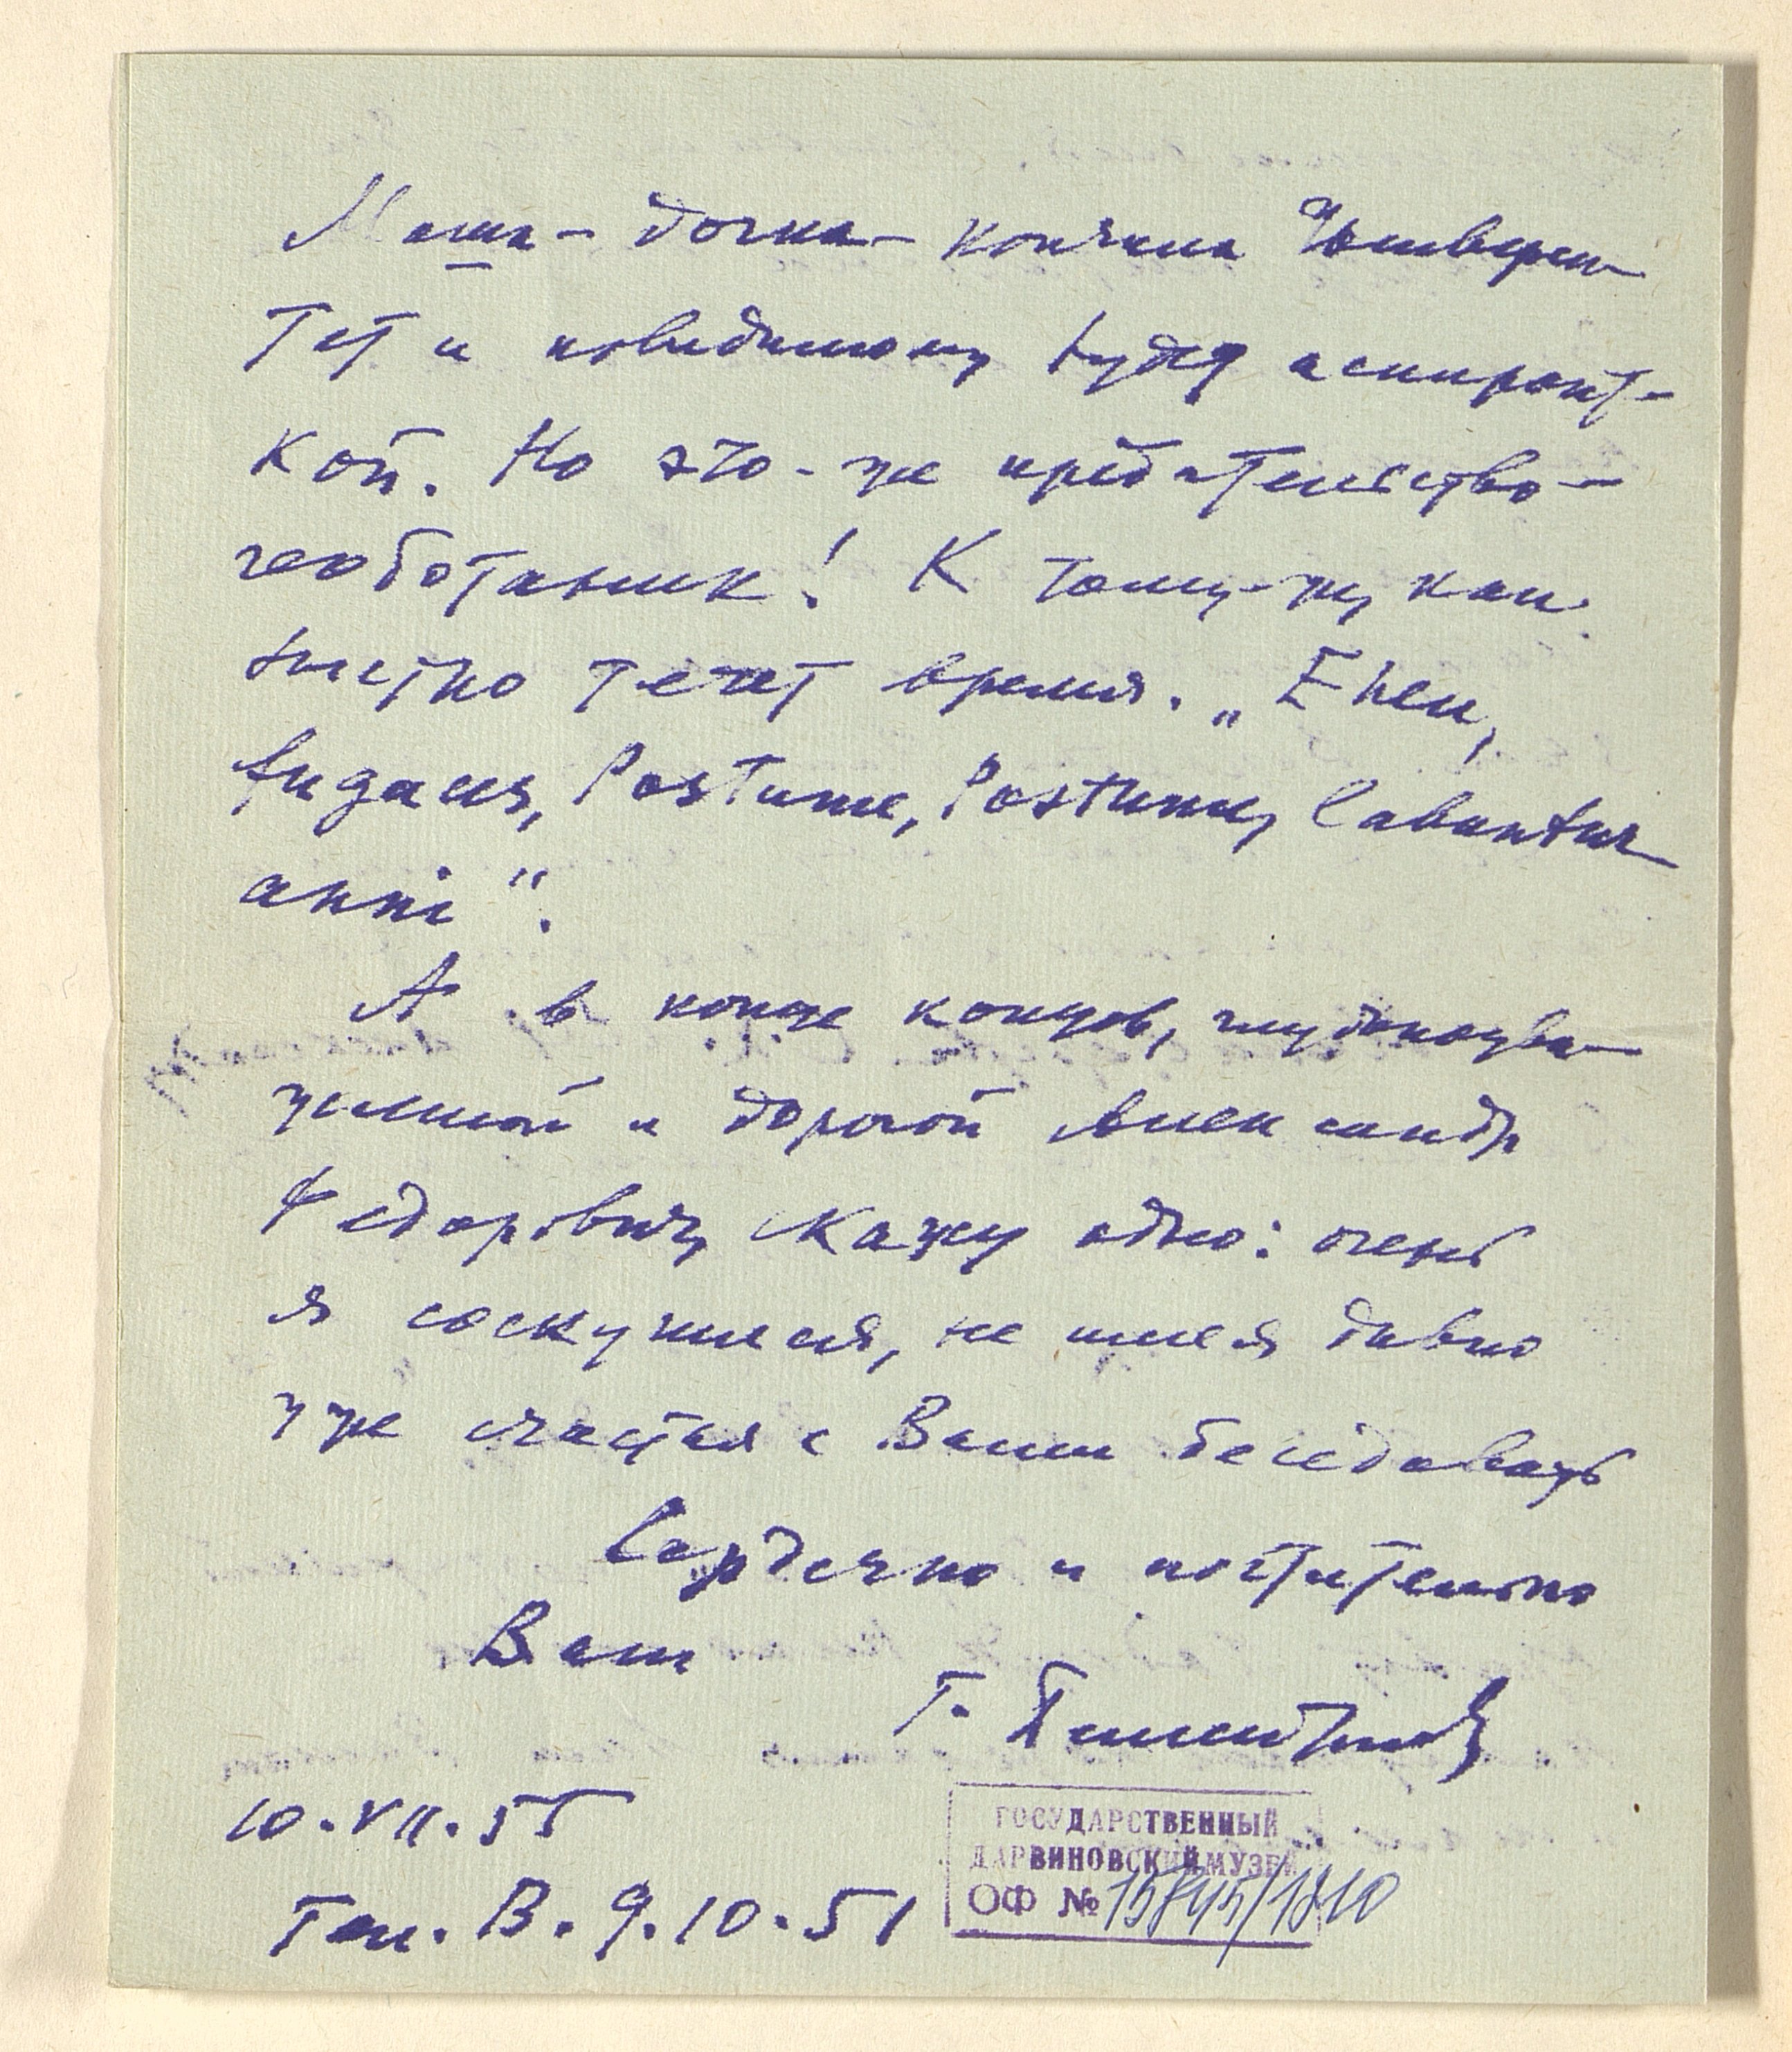 Маша – дочка – кончила Универси-
тет и повидимому будет аспирант-
кой. Но это-же предательство –
геоботаник! К тому-же, как
быстро течет время. „Eheu,
fugaces, Postume, Postume, labuntur
anni“.
А в конце концов, глубокоува-
жаемый и дорогой Александр
Федорович, скажу одно: очень
я соскучился, не имея давно
уже счастья с Вами беседовать
Сердечно и почтительно
Ваш
Г.
10.VII.55
Тел. В. 9.10.51
ГОСУДАРСТВЕННЫЙ
ДАРВИНОВСКИЙ МУЗЕЙ
ОФ №